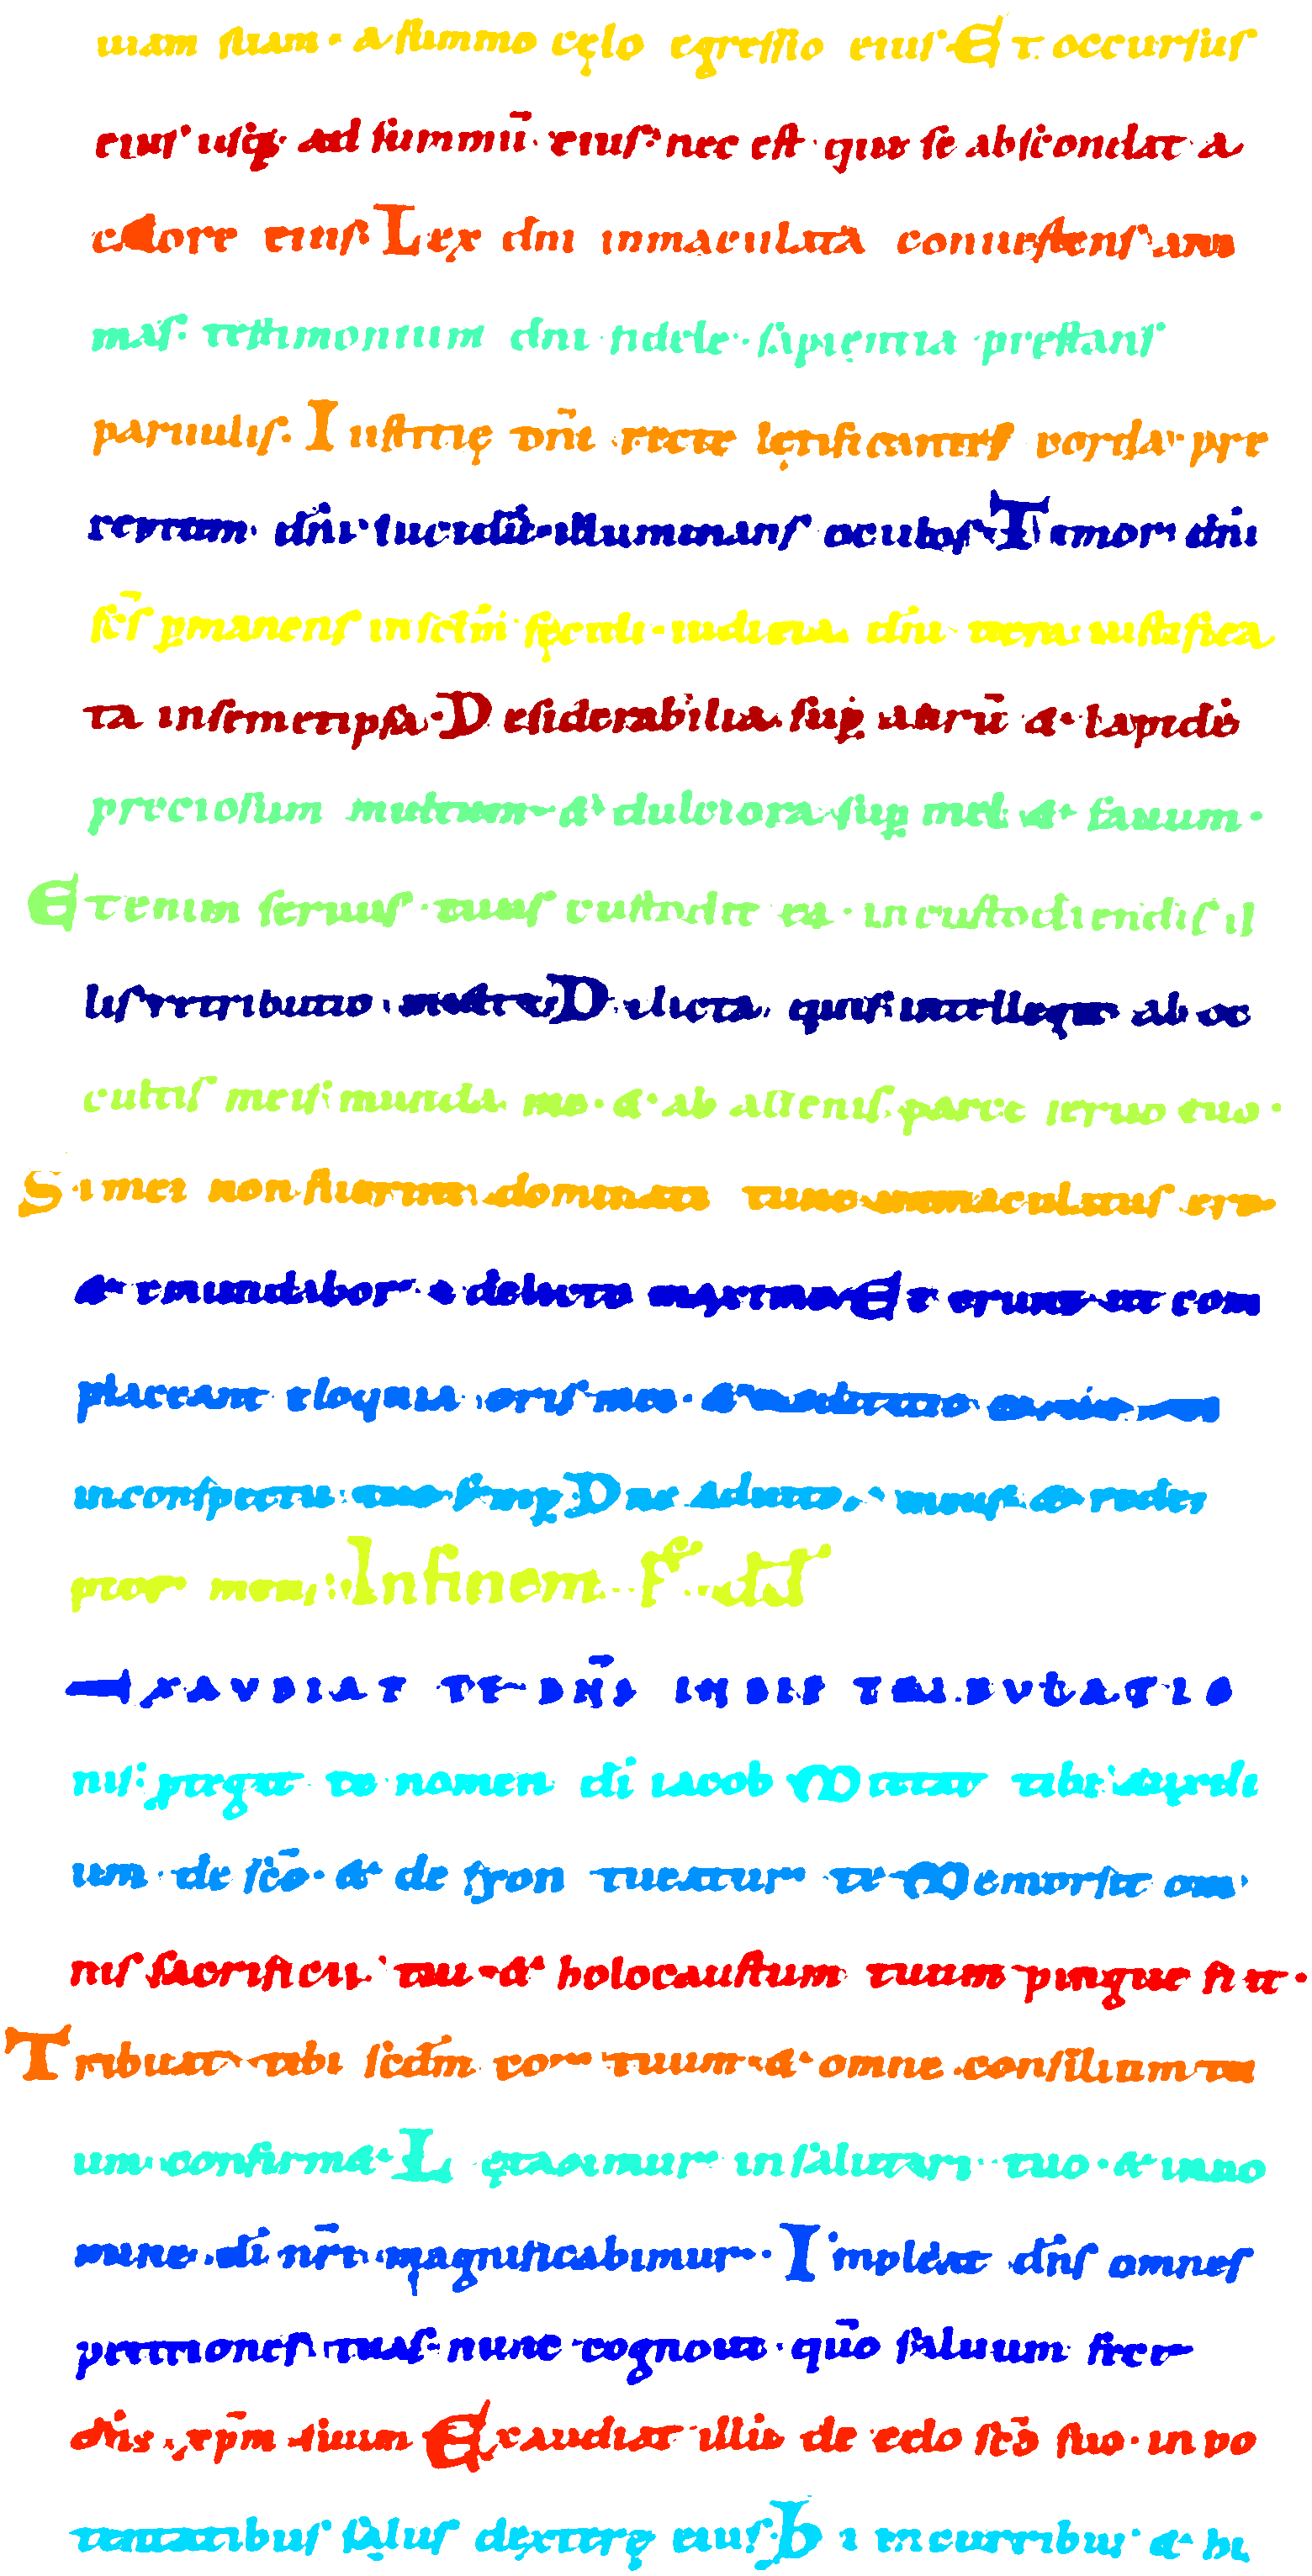 uiam suam · a summo cęlo egressio eius · Et occursus
eius usq; ad summū eius · nec est qui se abscondat a
calore eius Lex dn̄i inmaculata conuertens ani
mas · testimonium dn̄i fidele · sapientia prestans
paruulis · Iustitię dn̄i recte lętificantes corda · pre
ceptum dn̄i lucidū illuminans oculos · Timor dn̄i
sc̄s ꝑmanens in sclm̄ sęculi · iudicia dn̄i uera iustifica
ta insemetipsa · Desiderabilia suꝑ aurū & lapidē
preciosum multum · & dulciora suꝑ mel & fauum ·
Etenim seruus tuus custodit ea · in custodiendis il
lis retributio multa Delicta quis intellegit ab oc
cultis meis munda me · & ab alienis parce seruo tuo ·
Si mei non fuerint dominati tunc inmaculatus ero
& emundabor a delicto maximo Et erunt ut com
placeant eloquia oris mei · & meditatio cordis mei
inconspectu tuo semꝑ Dne adiutor meus & redem
ptor meus : Infinem ps dd
EXAVDIAT TE DN̄S IN DIE TRIBVLATIO
nis : ꝓtegat te nomen di iacob Mittat tibi auxili
um · de sc̄o · & de syon tueatur te Memor sit om
nis sacrificii tui · & holocaustum tuum pingue fiat ·
Tribuat tibi scdm̄ cor tuum · & omne consilium tu
um confirm& · Lętabimur in salutari tuo · & inno
mine di nr̄i magnificabimur · Impleat dn̄s omnes
petitiones tuas · nunc cognoui · qūo saluum fecit
dn̄s xp̄m suum Exaudiat illū de celo sc̄o suo · in po
tentatibus salus dexterę eius · Hi in curribus & hi